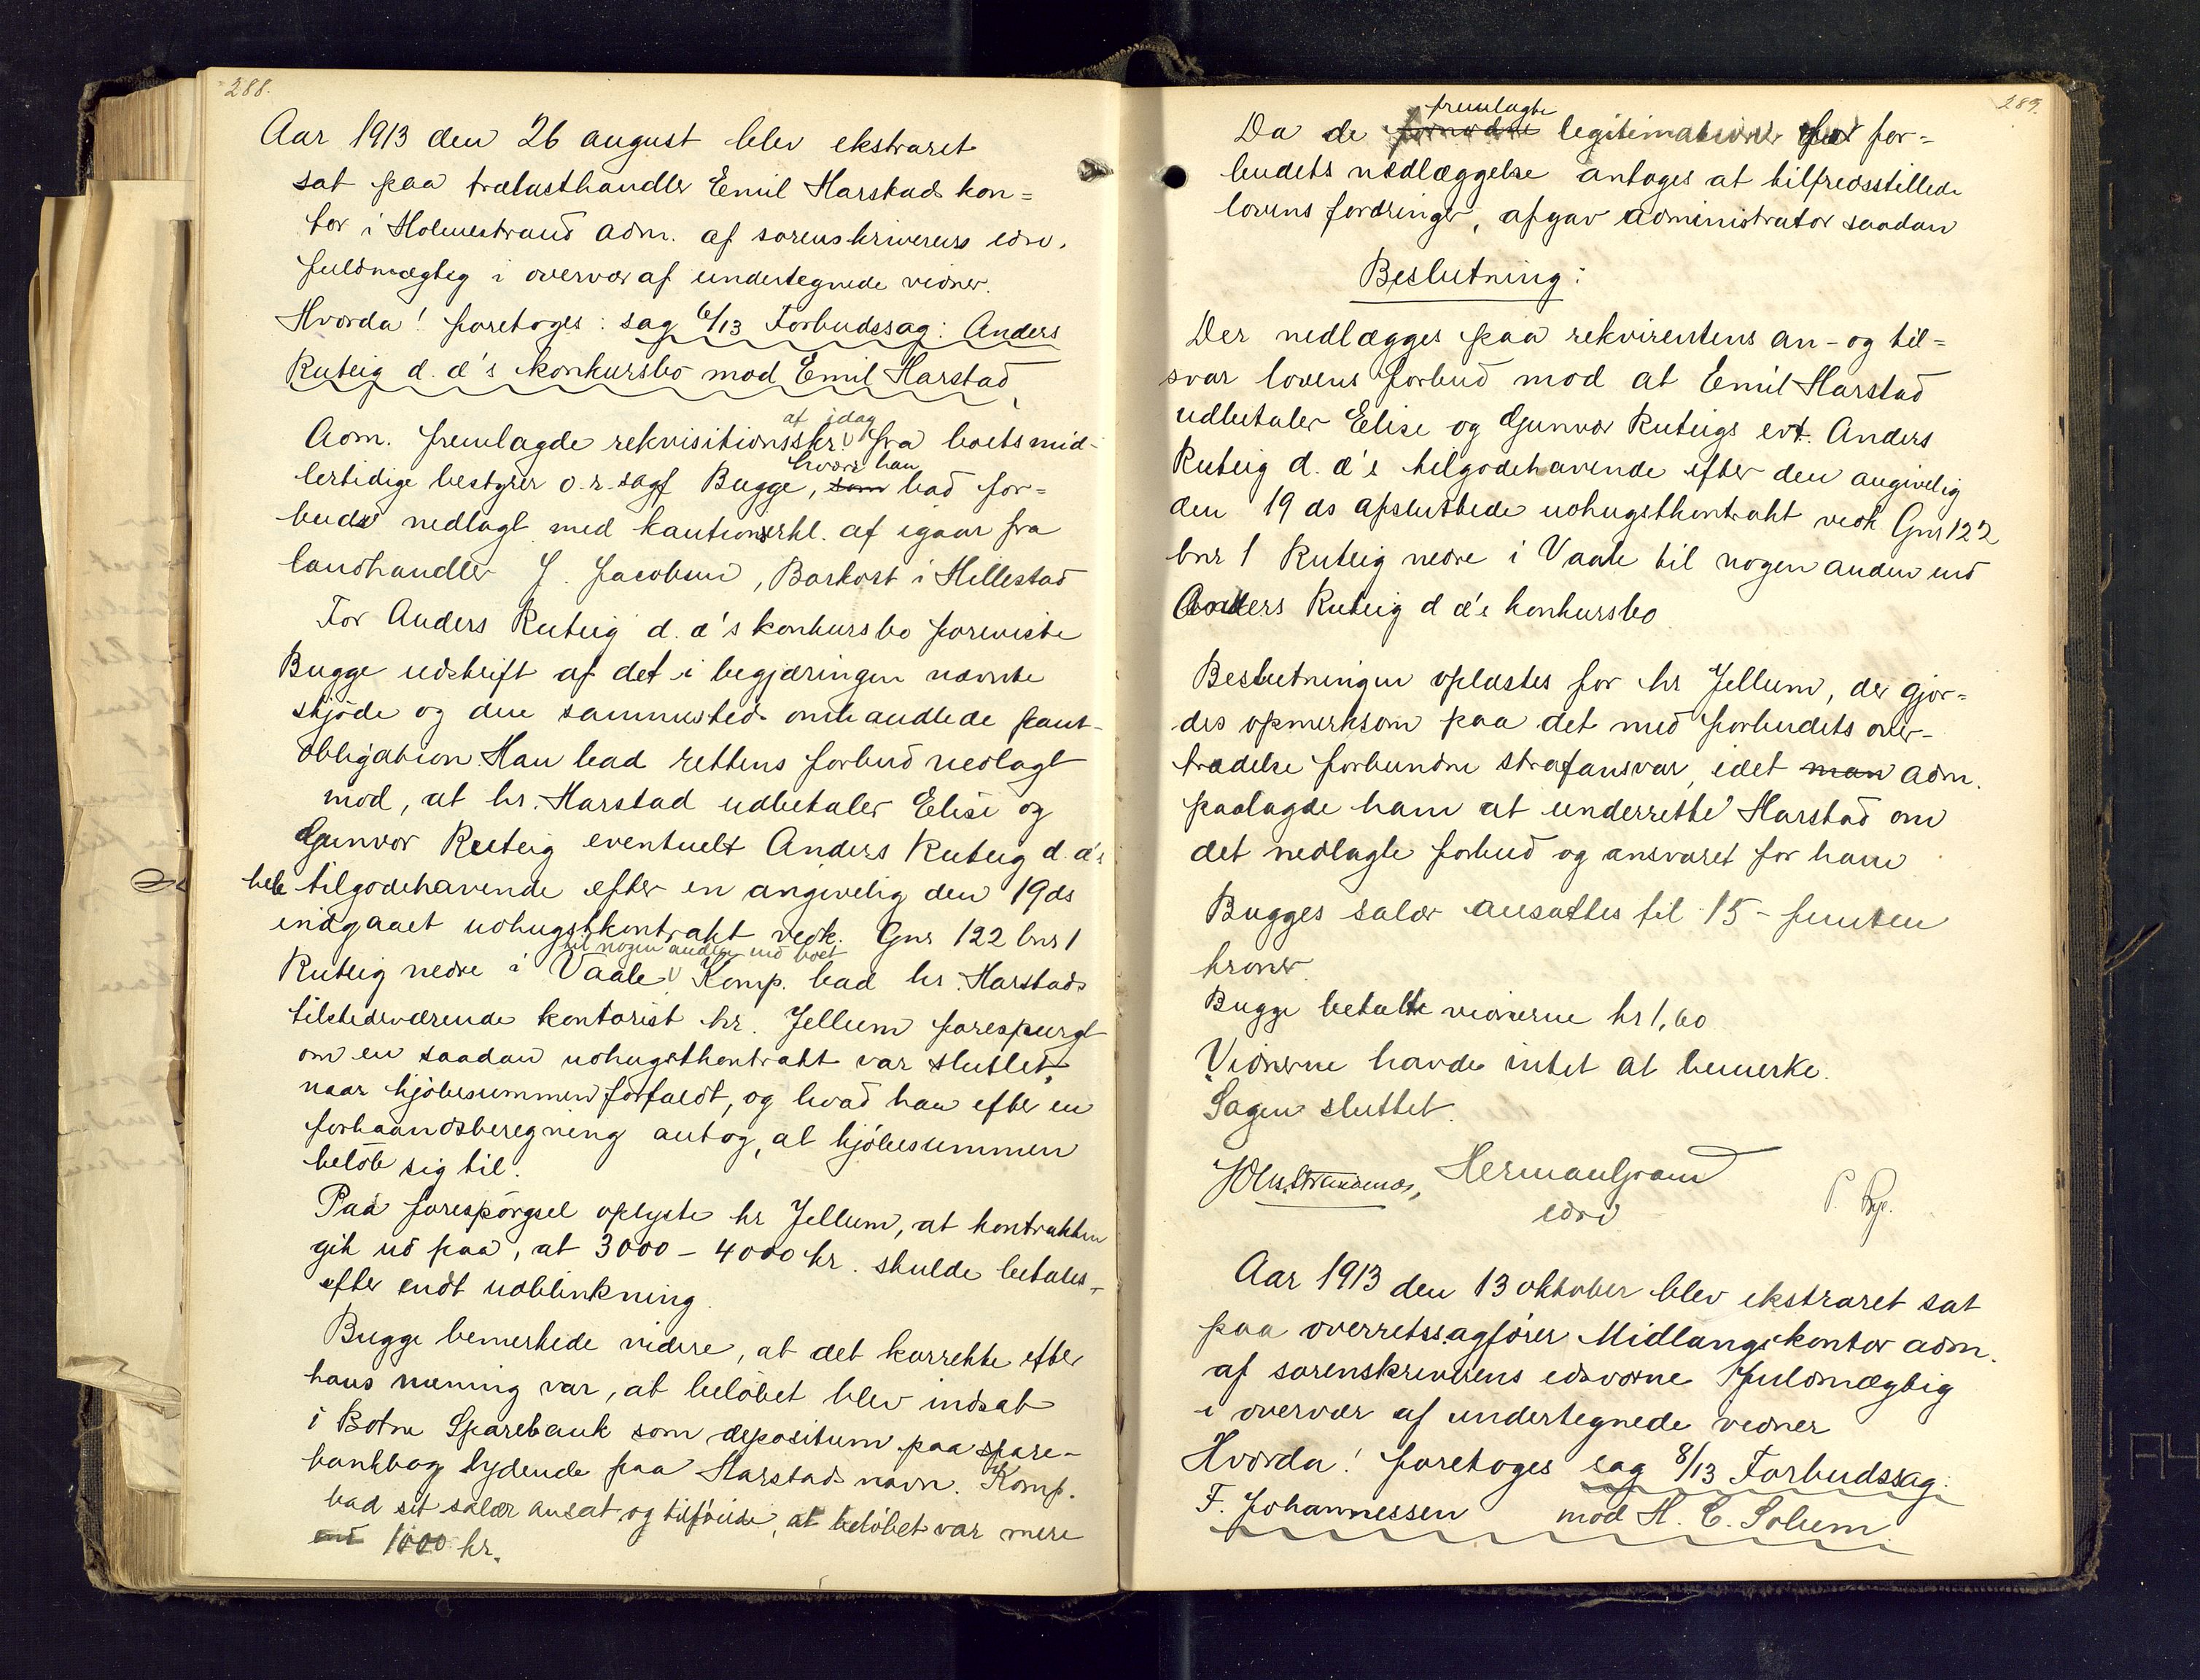 288.
Aar 1913 den 26 august blev ekstraret
sat paa trælasthandler Emil Harstads kon=
tor i Holmestrand adm. af sorenskriverens edsv.
fuldmægtig i overvær af undertegnede vidner.
Hvorda! foretoges: sag 6/13 Forbudssag: Anders
Ruteig d. æ's konkursbo mod Emil Harstad
af idag
Adm. fremlagde rekvisitionsskr. fra boets mid-
hvori han
lertidige bestyrer o.r.sagf Bugge, som bad for=
bud nedlagt med kautionserkl. af igaar fra
landhandler J. Jacobsen, Barkost i Hillestad
For Anders Ruteig d. æ's konkursbo foreviste
Bugge udskrift af det i begjæringen nævnte
skjøde og den sammesteds omhandlede pant-
obligation. Han bad rettens forbud nedlagt
mod, at hr. Harstad udbetaler Elise og
Gunvor Ruteig eventuelt Anders Ruteig d. æ's
hele tilgodehavende efter en angivelig den 19 ds
indgaaet udhugstkontrakt vedk. Gnr 122 bnr 1
til nogen anden end boet
Ruteig nedre i Vaale. Komp. bad hr. Harstads
tilstedeværende kontorist hr. Jellum forespurgt
om en saadan udhugstkontrakt var sluttet,
naar kjøbesummen forfaldt, og hvad han efter en
forhaandsberegning antog, at kjøbesummen
beløb sig til.
Paa forespørgsel oplyste hr Jellum, at kontrakten
gik ud paa, at 3000 – 4000 kr. skulde betales
efter endt udblinkning.
Bugge bemerkede videre, at det korrekte efter
hans mening var, at beløbet blev indsat
i Botne Sparebank som depositum paa spare-
bankbog lydende paa Harstads navn. Komp.
bad sit salær ansat og tilføiede, at beløbet var mere
end 1000 kr.
289.
fremlagte
Da de legitimationer for for=
budets nedlæggelse antages at tilfredsstillede
lovens fordringer, afgav administrator saadan
Beslutning:
Der nedlægges paa rekvirentens an- og til=
svar lovens forbud mod at Emil Harstad
udbetaler Elise og Gunvor Ruteigs evt. Anders
Ruteig d. æ's tilgodehavende efter den angivelig
den 19 ds afsluttede udhugstkontrakt vedk Gnr 122
bnr 1 Ruteig nedre i Vaale til nogen anden end
Anders Ruteig d æ's konkursbo
Beslutningen oplæstes for hr Jellum, der gjor=
des opmerksom paa det med forbudets over-
trædelse forbundne strafansvar, idet man adm.
paalagde ham at underrette Harstad om
det nedlagte forbud og ansvaret for ham
Bugges salær ansattes til 15 – femten
kroner.
Bugge betalte vidnerne kr 1,60
Vidnerne havde intet at bemerke.
Sagen sluttet.
Herman Gram
edsv
P. Bye.
Aar 1913 den 13 oktober blev ekstraret sat
paa overretssagfører Midlangs kontor adm.
af sorenskriverens edsvorne fuldmægtig
i overvær af undertegnede vidner
Hvorda! foretoges sag 8/13 Forbudssag:
F. Johannessen mod H. C. Solum